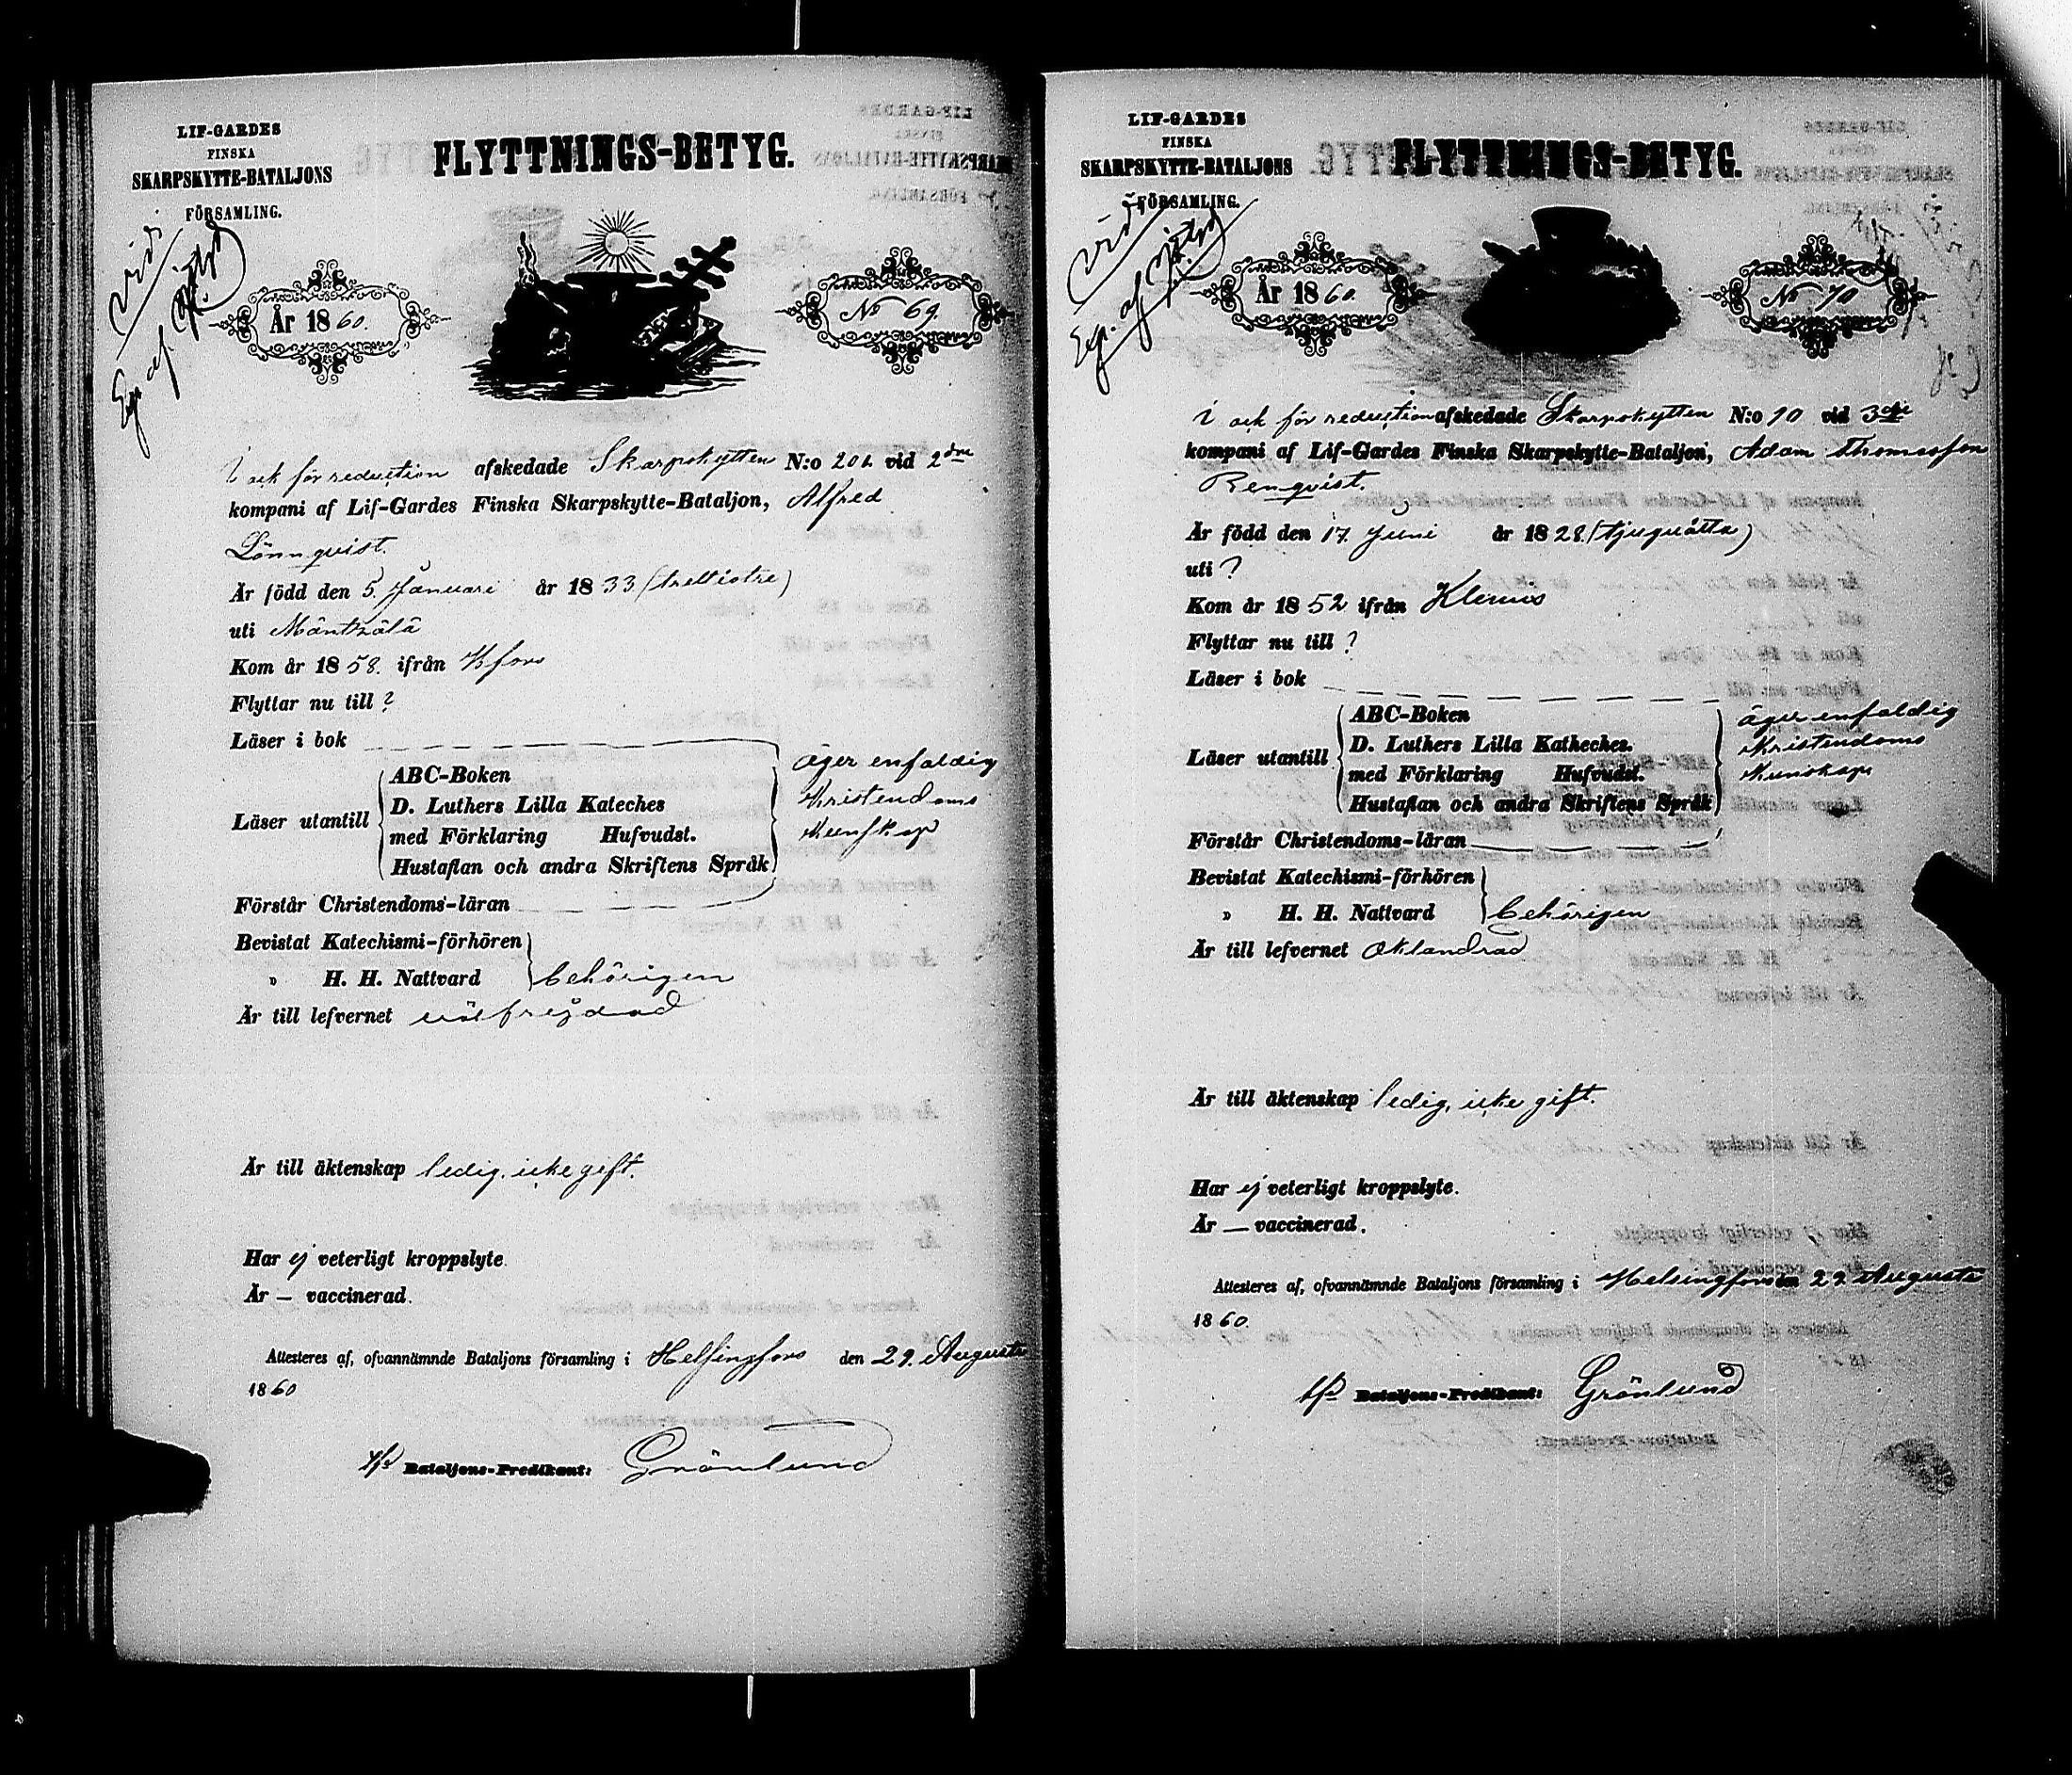 LIF-GARDES
FINSKA
SKARPSKYTTE-BATALJONS
FÖRSAMLING.
FLYTTNINGS-BETYG.
År 1860.
No 69.
afskedade Skarpskytten N:o 201. vid 2dra
kompani af Lif-Gardes Finska Skarpskytte-Bataljon, Alfred
Lönnqvist.
Är född den 5. Januari år 1833. (trettiotre)
uti Mäntzälä
Kom år 1858. ifrån Hfors
Flyttar nu till ?
Läser i bok
ABC-Boken
Läser utantill D. Luthers Lilla Kateches
med Förklaring Hufvudst.
Hustaflan och andra Skriftens Språk
äger enfaldig
Kristendoms
Kunskap
Förstår Christendoms-läran
Bevistat Katechismi-förhören
" H. H. Nattvard behörigen
Är till lefvernet välfrejdad
Är till äktenskap ledig, icke gift.
Har ej veterligt kroppslyte.
Är — vaccinerad.
Attesteres af, ofvannämnde Bataljons församling i Helsingfors den 29. Augusti
1860
Bataljons-Predikant: Grönlund
LIF-GARDES
FINSKA
SKARPSKYTTE-BATALJONS
FÖRSAMLING.
FLYTTNINGS-BETYG.
År 1860.
No 70
afskedade Skarpskytten N:o 70 vid 3dje
kompani af Lif-Gardes Finska Skarpskytte-Bataljon, Adam Thomasson
Renqvist.
Är född den 17. Juni år 1828. (tjuguåtta)
uti ?
Kom år 1852 ifrån
Flyttar nu till ?
Läser i bok
ABC-Boken
Läser utantill D. Luthers Lilla Katheches.
med Förklaring Hufvudst.
Hustaflan och andra Skriftens Språk
äger enfaldig
Kristendoms
Kunskap
Förstår Christendoms-läran
Bevistat Katechismi-förhören
" H. H. Nattvard behörigen
Är till lefvernet oklandrad
Är till äktenskap ledig, icke gift.
Har ej veterligt kroppslyte.
Är — vaccinerad.
Attesteres af, ofvannämnde Bataljons församling i Helsingfors den 29. Augusti
1860.
Bataljons-Predikant: Grönlund